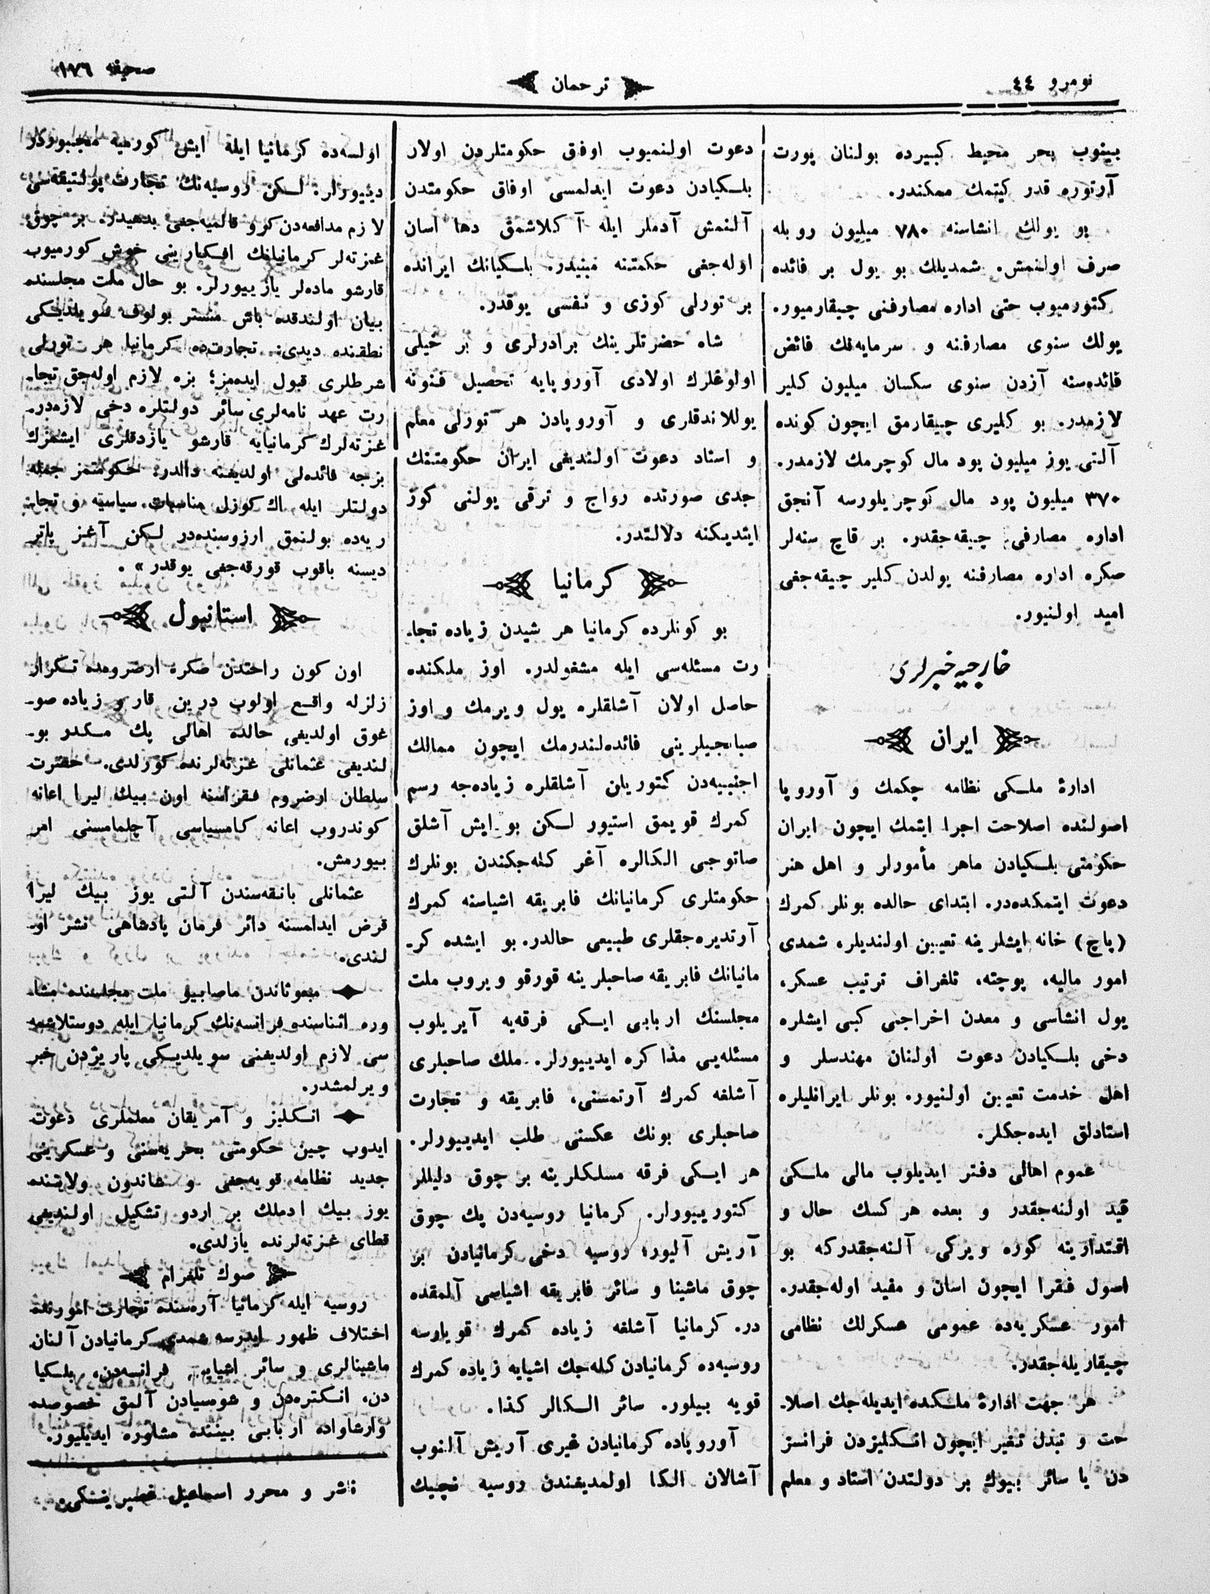 نومرو ٤٤
ترجمان
صحیفه ١٧٦
بینوب بحر محیط کبیرده بولنان پورت
آرتوره قدر کیتمك ممکندر.
بو یولك انشاسنه ٧٨٠ میلیون روبله
صرف اولنمش. شمدیلك بو یول بر فائده
کتورمیوب حتی اداره مصارفنی چیقارمیور.
یولك سنوی مصارفنه و سرمایه‌نك فائض
فائده‌سنه آزدن سنوی سکسان میلیون کلیر
لازمدر. بو کلیری چیقارمق ایچون کونده
آلتی یوز میلیون پود مال کوچرمك لازمدر.
٣٧٠ میلیون پود مال کوچریلورسه آنجق
اداره مصارفی چیقه‌جقدر. بر قاچ سنه‌لر
صکره اداره مصارفنه یولدن کلیر چیقه‌جغی
امید اولنیور.
خارجیه خبرلری
ایران
ادارۀ ملکی نظامه چکمك و آوروپا
اصولنده اصلاحت اجرا ایتمك ایچون ایران
حکومتی بلکیادن ماهر مأمورلر و اهل هنر
دعوت ایتمکده‌در. ابتدای حالده بونلر کمرك
(پاچ) خانه ایشلرینه تعیین اولندیلر، شمدی
امور مالیه، پوچته، تلغراف ترتیب عسکر،
یول انشاسی و معدن اخراجی کبی ایشلره
دخی بلکیادن دعوت اولنان مهندسلر و
اهل خدمت تعیین اولنیور. بونلر ایرانلیلره
استادلق ایده‌جکلر.
عموم اهالی دفتر ایدیلوب مالی ملکی
قید اولنه‌جقدر و بعده هر کسك حال و
اقتدارینه کوره ویرکی آلنه‌جقدرکه بو
اصول فقرا ایچون اسان و مفید اوله‌جقدر.
امور عسکریه‌ده عمومی عسکرلك نظامی
چیقاریله‌جقدر.
هر جهت ادارۀ ملکده ایدیله‌جك اصلا-
حت و تبدل تغیر ایچون انکلیزدن فرانسز
دن یا سائر بیوك بر دولتدن استاد و معلم
دعوت اولنمیوب اوفق حکومتلردن اولان
بلکیادن دعوت ایدلمسی اوفاق حکومتدن
آلنمش آدملر ایله آکلاشمق دها اسان
اوله‌جغی حکمتنه مبنیدر. بلکیانك ایرانده
بر تورلی کوزی و نفسی یوقدر.
شاه حضرتلرینك برادرلری و بر خیلی
اولوغلرك اولادی آوروپایه تحصیل فنونه
یوللاندقلری و آوروپادن هر تورلی معلم
و استاد دعوت اولندیغی ایران حکومتنك
جدی صورتده رواج و ترقی یولنی کوز
ایتدیکنه دلالتدر.
کرمانیا
بو کونلرده کرمانیا هر شیدن زیاده تجا-
رت مسئله‌سی ایله مشغولدر. اوز ملکنده
حاصل اولان آشلقلره یول ویرمك و اوز
صبانجیلرینی فائده‌لندرمك ایچون ممالك
اجنبیه‌دن کتوریلن آشلقلره زیاده‌جه رسم
کمرك قویمق استیور لکن بو ایش آشلق
صاتوجی الکالره آغر کله‌جکندن بونلرك
حکومتلری کرمانیانك فابریقه اشیاسنه کمرك
آرتدیره‌جقلری طبیعی حالدر. بو ایشده کر-
مانیانك فابریقه صاحبلرینه قورقو ویروب ملت
مجلسنك اربابی ایکی فرقه‌یه آیریلوب
مسئله‌یی مذاکره ایدییورلر. ملك صاحبلری
آشلغه کمرك آرتمسنی، فابریقه و تجارت
صاحبلری بونك عکسنی طلب ایدییورلر.
هر ایکی فرقه مسلکلرینه بر چوق دلیللر
کتوریییورلر. کرمانیا روسیه‌دن پك چوق
آریش آلیور؛ روسیه دخی کرمانیادن بر
چوق ماشینا و سائر فابریقه اشیاسی آلمقده
در. کرمانیا آشلغه زیاده کمرك قویارسه
روسیه‌ده کرمانیادن کله‌جك اشیایه زیاده کمرك
قویه بیلور. سائر الکالر کذا.
آوروپاده کرمانیادن غیری آریش آلنوب
آشالان الکا اولمدیغندن روسیه نچیك
اولسه‌ده کرمانیا ایله ایش کورمیه مجبوردر
دییورلر؛ لکن روسیه‌نك تجارت پولتیقه‌سی
لازم مدافعه‌دن کرو قالمیه‌جغی بدهیدر. بر چوق
غزته‌لر کرمانیانك افکارینی خوش کورمیوب
قارشو ماده‌لر یازییورلر. بو حال ملت مجلسنده
بیان اولندقده باش منستر بولوف سویلدیکی
نطقنده دیدی: تجارتده کرمانیا هر تورلی
شرطلری قبول ایده‌مز؛ بزه لازم اوله‌جق تجا-
رت عهد نامه‌لری سائر دولتلره دخی لازمدر.
غزته‌لرك کرمانیایه قارشو یازدقلری ایشمزك
بزجه فائده‌لی اولدیغنه دالدر. حکومتمز جمله
دولتلر ایله اك کوزل مناسبات سیاسیه و تجا-
ریه‌ده بولنمق ارزوسنده‌در لکن آغز پاتر
دیسنه باقوب قورقه‌جغی یوقدر» .
استانبول
اون کون راحتدن صکره ارضرومده تکرار
زلزله واقع اولوب درین قار و زیاده صو-
غوق اولدیغی حالده اهالی پك مکدر بو-
لندیغی عثمانلی غزته‌لرنده کورلدی. حضرت
سلطان ارضروم فقراسنه اون بیك لیرا اعانه
کوندروب اعانه کامسیاسی آچلماسنی امر
بیورمش.
عثمانلی بانقه‌سندن آلتی یوز بیك لیرا
قرض ایدلمسنه دائر فرمان پادشاهی نشر او-
لندی.
مبعوثاندن ماصابیو ملت مجلسنده مشا-
وره اثناسنده فرانسه‌نك کرمانیا ایله دوستلاشمه
سی لازم اولدیغنی سویلدیکی پاریژدن خبر
ویرلمشدر.
انکلیز و آمریقان معلملری دعوت
ایدوب چین حکومتی بحریه‌سنی و عسکرینی
جدید نظامه قویه‌جغی و شاندون ولاشنده
یوز بیك ادملك بر اردو تشکیل اولندیغی
قطای غزته‌لرنده یازلدی.
صوك تلغرام
روسیه ایله کرمانیا آره‌سنده تجارت امورنده
اختلاف ظهور ایدرسه عمدی کرمانیادن آلنان
ماشینالری و سائر اشیایی فرانسه‌دن، بلکیا
دن، انکتره‌دن و شوسیادن آلمق خصوصده
وارشاواده اربابی بیننده مشاوره ایدیلیور.
ناشر و محرر اسماعیل غصپرینسکی.